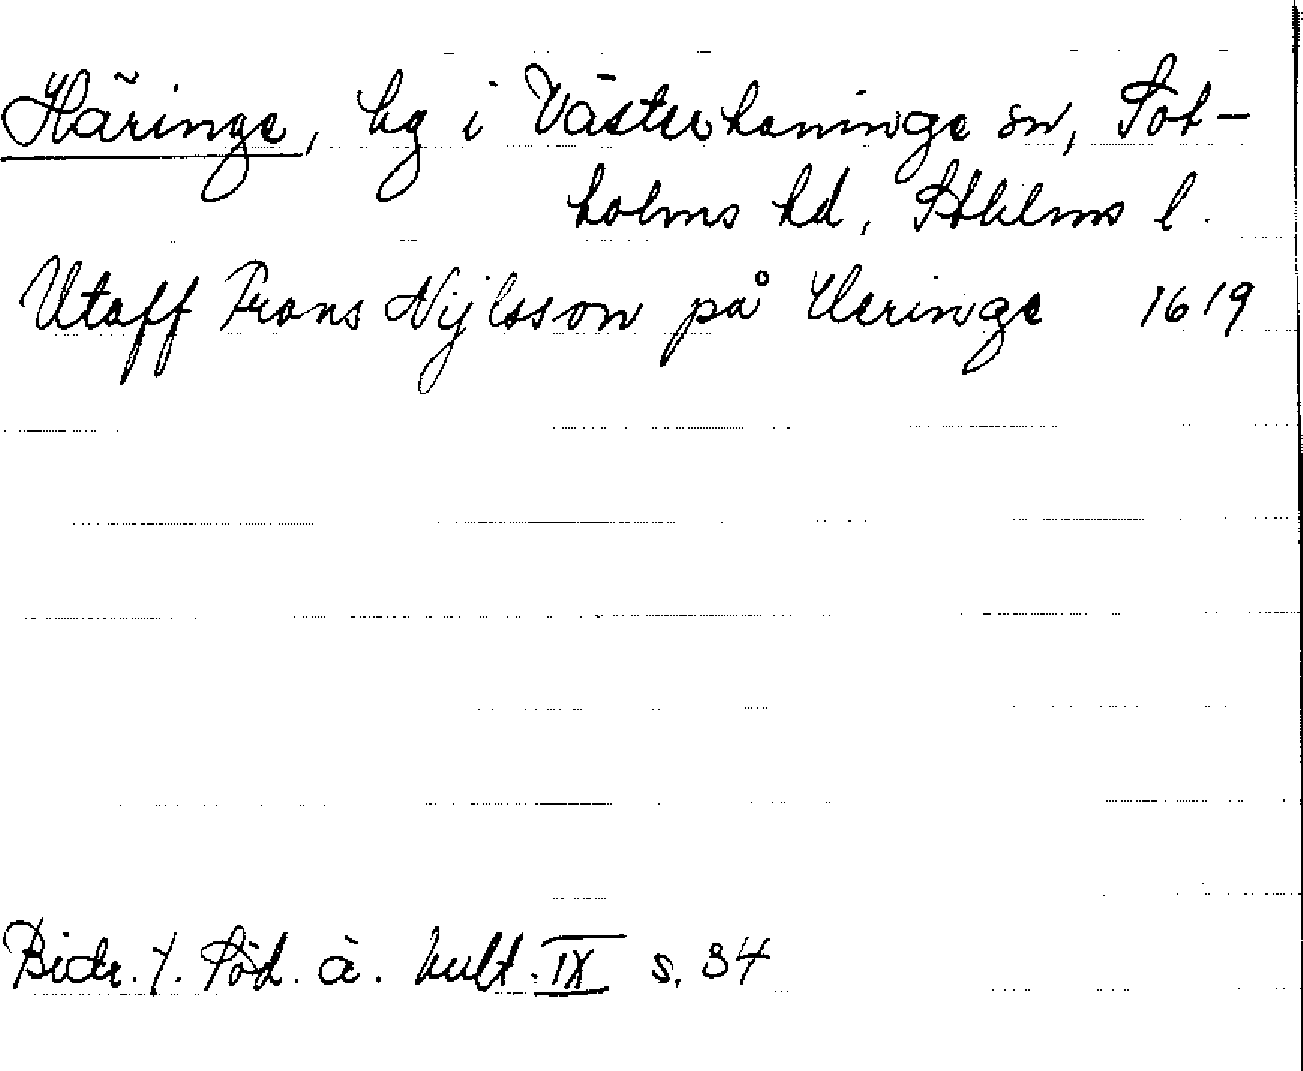 Häringe, hg i Västerhaninge sn, Sot-
holms hd, Sthlms l.
Utaff Frans Nijlsson på Heringe 1619
Bidr. t. Söd. ä. kult. IX s. 34